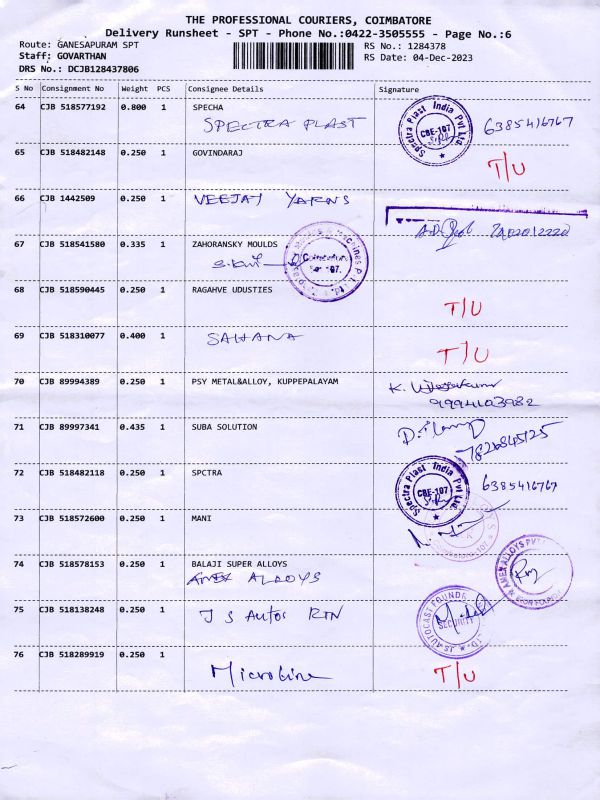 THE PROFESSIONAL COURIERS, COIMBATORE
Delivery Runsheet - SPT - Phone No.:0422-3505555 - Page No.:6
Route: GANESAPURAM SPT
RS No.: 1284378
Staff: GOVARTHAN
RS Date: 04-Dec-2023
DRS No.: DCJB128437806
S No Consignment No Weight PCS Consignee Details Signature
64 CJB 518577192 0.800 1 SPECHA
SPECTRA PLAST
Spectra Plast India Pvt Ltd.
CBE-107
6385416767
65 CJB 518482148 0.250 1 GOVINDARAJ
T/U
66 CJB 1442509 0.250 1 VEEJAY YARNS
67 CJB 518541580 0.335 1 ZAHORANSKY MOULDS
68 CJB 518590445 0.250 1 RAGAHVE UDUSTIES
T/U
69 CJB 518310077 0.400 1 SAHANA
T/U
70 CJB 89994389 0.250 1 PSY METAL&ALLOY, KUPPEPALAYAM
9994103982
71 CJB 89997341 0.435 1 SUBA SOLUTION
72 CJB 518482118 0.250 1 SPCTRA
Spectra Plast India Pvt Ltd.
CBE-107
6385416767
73 CJB 518572600 0.250 1 MANI
74 CJB 518578153 0.250 1 BALAJI SUPER ALLOYS
ALLOYS
75 CJB 518138248 0.250 1 J S Autos RTN
JS AUTOCAST FOUNDR
SECURITY
76 CJB 518289919 0.250 1 Microfine
T/U